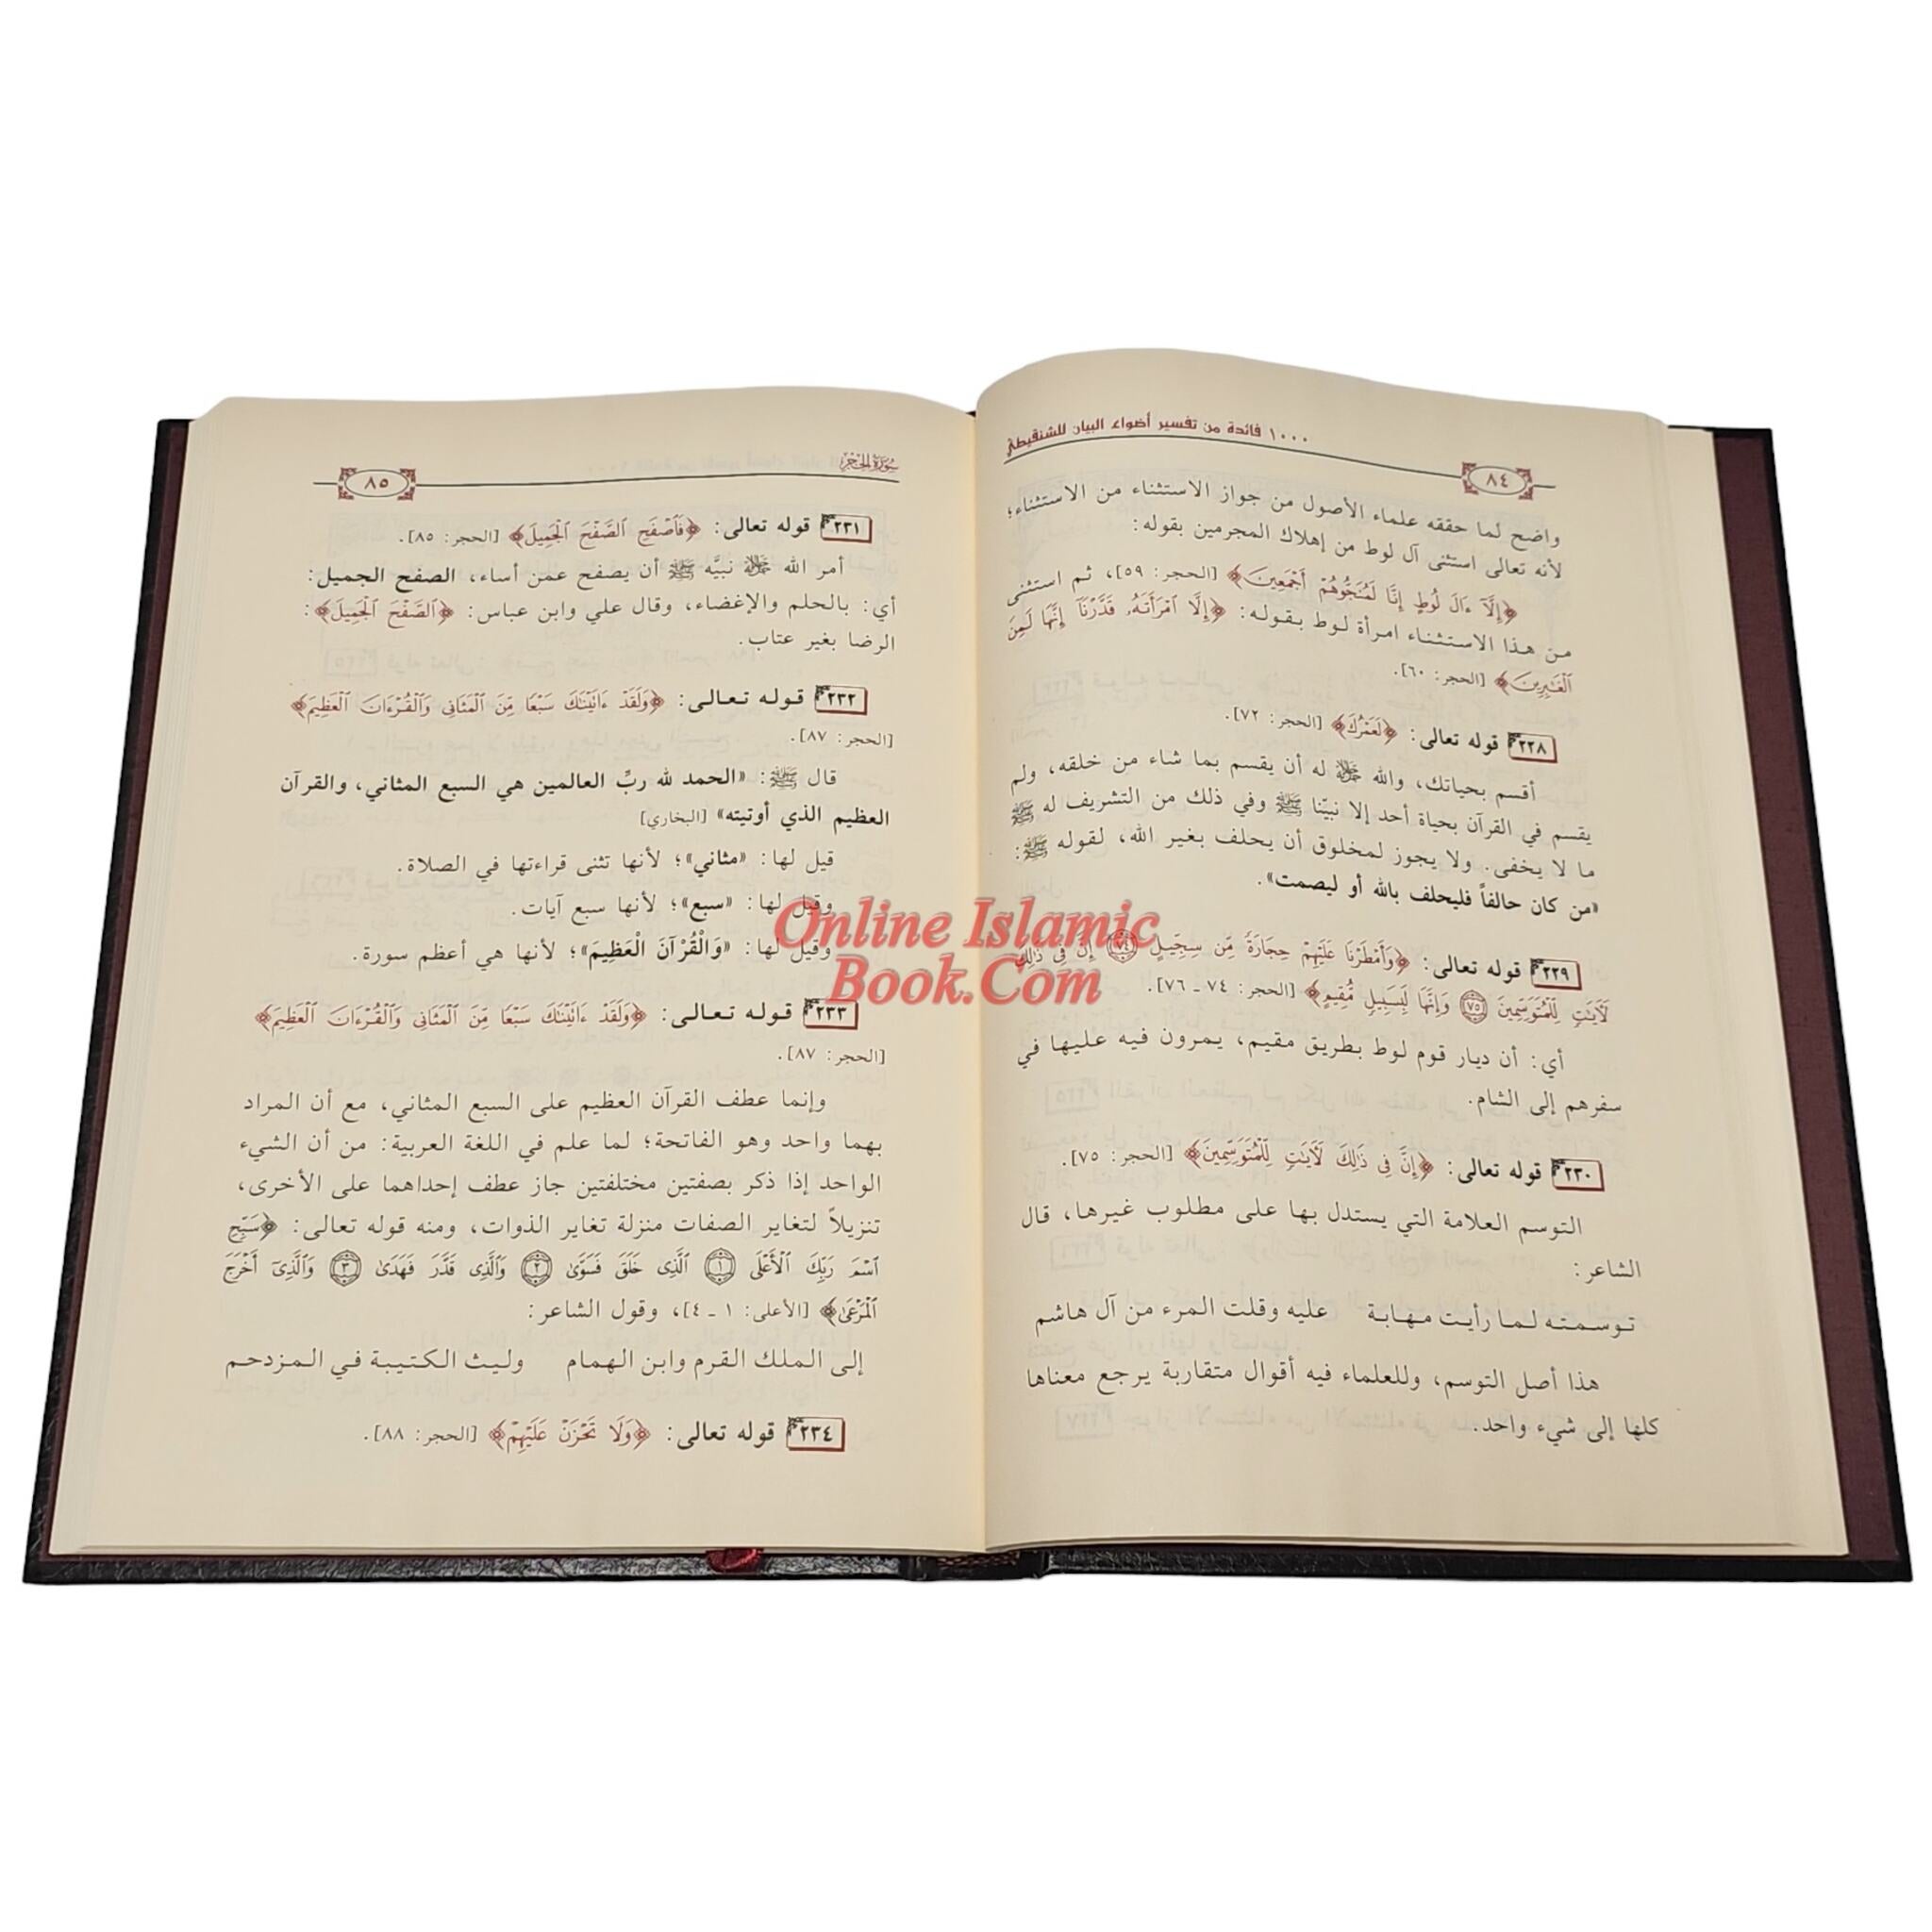 ١٠٠٠ فائدة من تفسير أضواء البيان للشنقيطي
٨٤
واضح لما حققه علماء الأصول من جواز الاستثناء من الاستثناء؛
لأنه تعالى استثنى آل لوط من إهلاك المجرمين بقوله:
﴿إِلَّآ ءَالَ لُوطٍ إِنَّا لَمُنَجُّوهُمْ أَجْمَعِينَ﴾ [الحجر: ٥٩]، ثم استثنى
من هذا الاستثناء امرأة لوط بقوله: ﴿إِلَّا ٱمْرَأَتَهُۥ قَدَّرْنَآ إِنَّهَا لَمِنَ
ٱلْغَٰبِرِينَ﴾ [الحجر: ٦٠].
٢٢٨ قوله تعالى: ﴿لَعَمْرُكَ﴾ [الحجر: ٧٢].
أقسم بحياتك، والله ﷻ له أن يقسم بما شاء من خلقه، ولم
يقسم في القرآن بحياة أحد إلا نبيّنا ﷺ وفي ذلك من التشريف له ﷺ
ما لا يخفى. ولا يجوز لمخلوق أن يحلف بغير الله، لقوله ﷺ:
«من كان حالفاً فليحلف بالله أو ليصمت».
٢٢٩ قوله تعالى: ﴿وَأَمْطَرْنَا عَلَيْهِمْ حِجَارَةً مِّن سِجِّيلٍ ٧٤ إِنَّ فِى ذَٰلِكَ
لَأَيَٰتٍ لِّلْمُتَوَسِّمِينَ ٧٥ وَإِنَّهَا لَبِسَبِيلٍ مُّقِيمٍ﴾ [الحجر: ٧٤ ـ ٧٦].
أي: أن ديار قوم لوط بطريق مقيم، يمرون فيه عليها في
سفرهم إلى الشام.
٢٣٠ قوله تعالى: ﴿إِنَّ فِى ذَٰلِكَ لَأَيَٰتٍ لِّلْمُتَوَسِّمِينَ﴾ [الحجر: ٧٥].
التوسم العلامة التي يستدل بها على مطلوب غيرها، قال
الشاعر:
توسمته لما رأيت مهابة عليه وقلت المرء من آل هاشم
هذا أصل التوسم، وللعلماء فيه أقوال متقاربة يرجع معناها
كلها إلى شيء واحد.
سُورَةُ الحِجْرِ
٨٥
٢٣١ قوله تعالى: ﴿فَٱصْفَحِ ٱلصَّفْحَ ٱلْجَمِيلَ﴾ [الحجر: ٨٥].
أمر الله ﷻ نبيَّه ﷺ أن يصفح عمن أساء، الصفح الجميل:
أي: بالحلم والإغضاء، وقال علي وابن عباس: ﴿ٱلصَّفْحَ ٱلْجَمِيلَ﴾:
الرضا بغير عتاب.
٢٣٢ قوله تعالى: ﴿وَلَقَدْ ءَاتَيْنَٰكَ سَبْعًا مِّنَ ٱلْمَثَانِى وَٱلْقُرْءَانَ ٱلْعَظِيمَ﴾
[الحجر: ٨٧].
قال ﷺ: «الحمد لله ربِّ العالمين هي السبع المثاني، والقرآن
العظيم الذي أوتيته» [البخاري]
قيل لها: «مثاني»؛ لأنها تثنى قراءتها في الصلاة.
وقيل لها: «سبع»؛ لأنها سبع آيات.
وقيل لها: «وَالْقُرْآنَ الْعَظِيمَ»؛ لأنها هي أعظم سورة.
٢٣٣ قوله تعالى: ﴿وَلَقَدْ ءَاتَيْنَٰكَ سَبْعًا مِّنَ ٱلْمَثَانِى وَٱلْقُرْءَانَ ٱلْعَظِيمَ﴾
[الحجر: ٨٧].
وإنما عطف القرآن العظيم على السبع المثاني، مع أن المراد
بهما واحد وهو الفاتحة؛ لما علم في اللغة العربية: من أن الشيء
الواحد إذا ذكر بصفتين مختلفتين جاز عطف إحداهما على الأخرى،
تنزيلاً لتغاير الصفات منزلة تغاير الذوات، ومنه قوله تعالى: ﴿سَبِّحِ
ٱسْمَ رَبِّكَ ٱلْأَعْلَى ١ ٱلَّذِى خَلَقَ فَسَوَّىٰ ٢ وَٱلَّذِى قَدَّرَ فَهَدَىٰ ٣ وَٱلَّذِىٓ أَخْرَجَ
ٱلْمَرْعَىٰ﴾ [الأعلى: ١ ـ ٤]، وقول الشاعر:
إلى الملك القرم وابن الهمام وليث الكتيبة في المزدحم
٢٣٤ قوله تعالى: ﴿وَلَا تَحْزَنْ عَلَيْهِمْ﴾ [الحجر: ٨٨].
Online Islamic
Book.Com